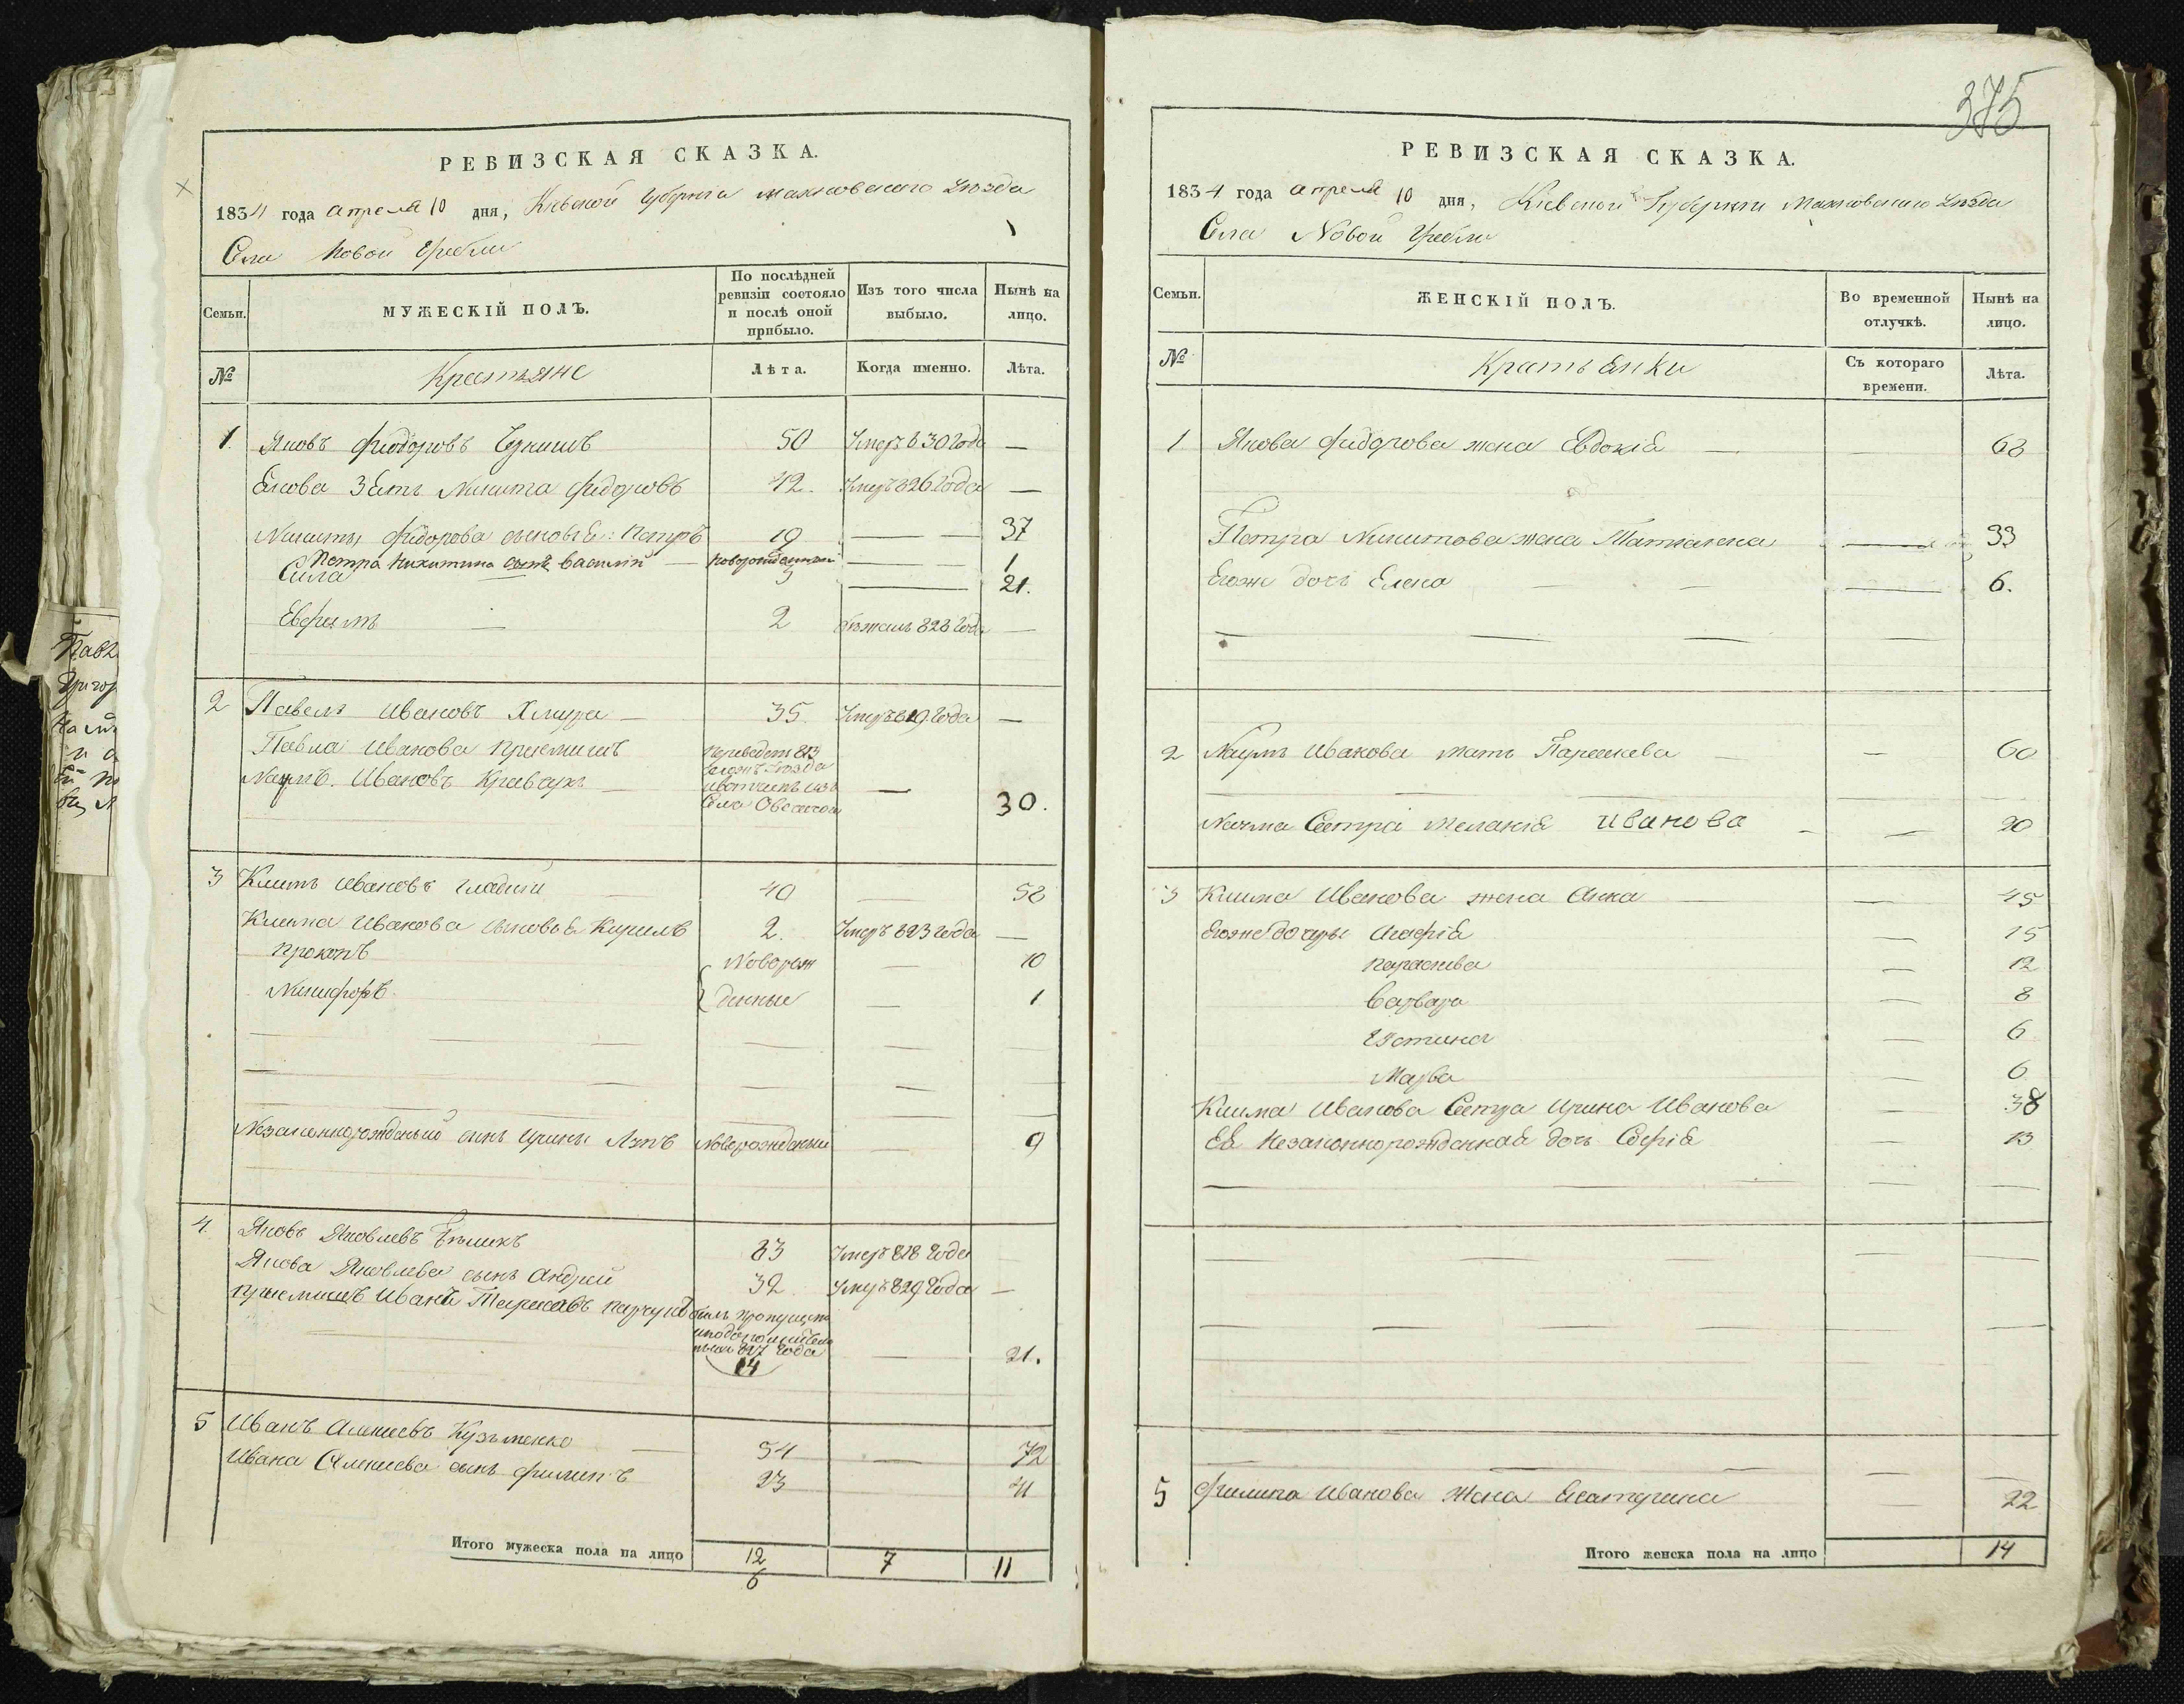 375
РЕВИЗСКАЯ СКАЗКА.
1834 года апреля 10 дня, Кіевской Губернiи Махновского Уезда
Села Новой Гребли
Семьи.
МУЖЕСКІЙ ПОЛЪ.
По послѣдней ревизіи состояло и послѣ оной прибыло.
Изъ того числа выбыло.
Нынѣ на лицо.
№
Крестьяне
Лѣта.
Когда именно.
Лѣта.
1. Яковъ Фиодоровъ 50 Умеръ 830 Года —
Якова Зять Никита Федоровъ 42. Умеръ 826 Года —
Никиты Федорова сыновья: Петръ 19 — — 37
Петра Никитина сынъ Василий — новорожденный — 1
Сила 3 — 21.
Евфимъ — 2 бежалъ 828 Года —
2 Павелъ Ивановъ Хмура — 35 Умеръ 819 Года —
Павла Иванова приемишъ
Наумъ Ивановъ Кравчук —
Села — 30.
3 Климъ Ивановъ Гладкий 40 — 58
Клима Иванова сыновья Кирилъ 2. Умеръ 823 года —
Прокопъ Новорож — 10
Никифоръ денные — 1
Незаконнорожденый сынъ Ирины новорожденый — 9
4 Яковъ Яковлевъ 83 Умеръ 818 Года
Якова Яковлева сынъ Андрей 32 Умеръ 829 Года —
приемишъ Иванъ былъ пропущенъ
827 Года
14 — 21.
5 Иванъ Алексеевъ Кузьменко — 54 — 72
Ивана Алексеева сынъ Филипъ 23 41
Итого мужеска пола на лицо 12 7 11
6
РЕВИЗСКАЯ СКАЗКА.
1834 года апреля 10 дня, Кіевской Губернiи Махновского Уезда
Села Новой Гребли
Семьи.
ЖЕНСКІЙ ПОЛЪ.
Во временной отлучкѣ.
Нынѣ на лицо.
№
Крестьянки
Съ котораго времени.
Лѣта.
1 Якова Федорова жена Евдокiя — — 63
Петра Никитова жена Татьяна — 33
Егоже дочь Елена — — — 6.
2 Наума Иванова мать Параскева — — 60
Наума Сестра Меланiя Иванова — — 20
3 Клима Иванова жена Анна — — 45
Егоже дочери Агафiя — 15
Параскева — 12
Варвара — 8
Устина — 6
Марва — 6
Клима Иванова Сестра Ирина Иванова — 38
Ея незаконнорожденная дочь Софiя — 13
5 Филипа Иванова Жена Екатерина 22
Итого женска пола на лицо 14